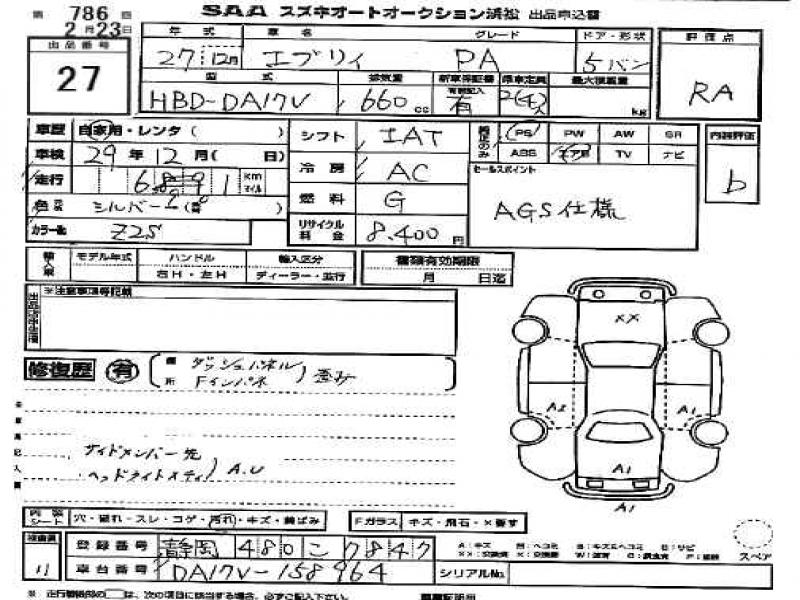 第 786 回 SAA スズキオートオークション浜松 出品申込書
2月23日
出品番号
27
年式 車名 グレード ドア・形状
27 12月 エブリイ PA 5バン
型式 排気量 新車保証書 乗車定員 最大積載量
HBD-DA17V 660cc 有 kg
評価点
RA
内装評価
b
車歴 自家用・レンタ( )
車検 29年12月( 日)
走行 6891 km マイル
色 シルバー
カラーNo. Z2S
シフト IAT
冷房 AC
燃料 G
リサイクル料金 8,400
純正のみ PS PW AW SR
ABS エアB TV ナビ
セールスポイント
AGS仕様
輸入車 モデル年式 ハンドル 輸入区分
右H・左H ディーラー・並行
書類有効期限
月 日迄
※注意事項等記載
修復歴 有
箇所 ダッシュパネル
Fインパネ 歪み
サイドメンバー先
ヘッドライトステイ A.U
XX
A2 A1
A1
A1
内装シート 穴・破れ・スレ・コゲ・汚れ・キズ・錆ばみ
Fガラス キズ・飛石・×要す
検査員
11
登録番号 静岡 480 こ 7847
車台番号 DA17V-158964
シリアルNo.
スペア